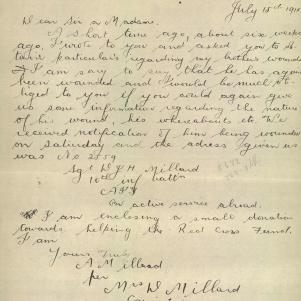 July 15th 191
Dear Sir or Madame.
A short time ago, about six weeks
ago, I wrote to you and asked you to ob
tain particulars regarding my brothers wounds
I am sorry to say that he has again
been wounded and I would be much ob
liged to you if you could again give
us some information regarding the nature
of his wound, his whereabouts etc. We
received notification of him being wounded
on Saturday and the adress given us
was No 2559
Sgt D J H Millard
10th inf Battn
AIF
On active service abroad.
I am enclosing a small donation
towards helping the Red Cross Fund.
I am
Yours Truly
A Millard
per
Mrs D Millard